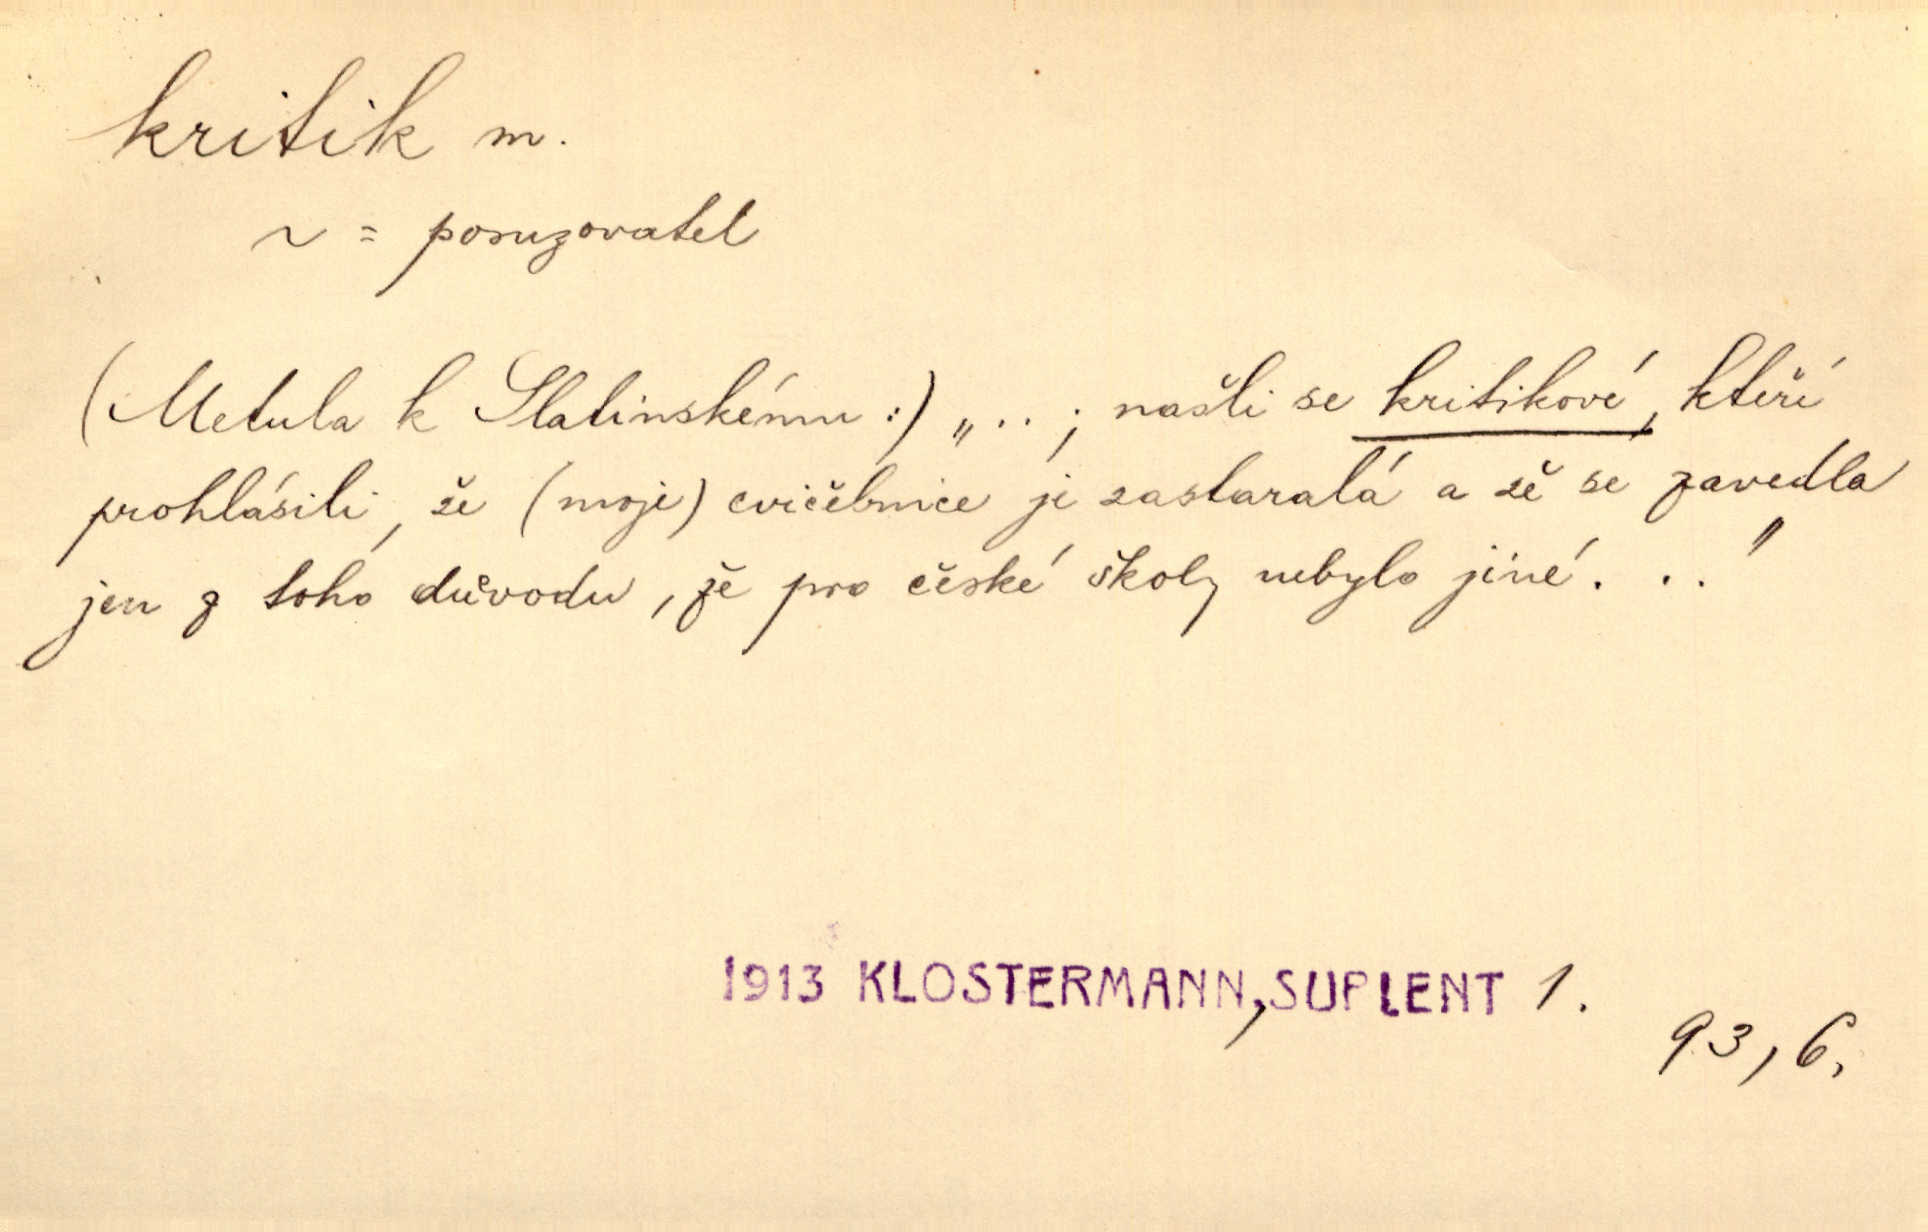 kritik m.
~ = posuzovatel
(Metula k Slatinskému:) „ . . ; našli se kritikové, kteří
prohlásili, že (moje) cvičebnice je zastaralá a že se zavedla
jen z toho důvodu, že pro české školy nebylo jiné . . . "
1913 KLOSTERMANN, SUPLENT 1.
93, 6,